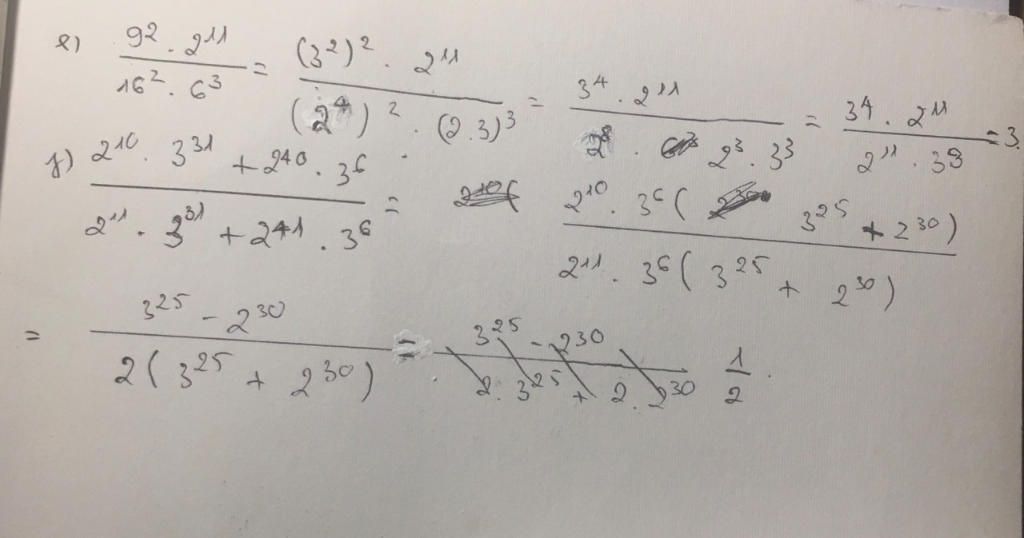 e) \frac{9^2 \cdot 2^{11}}{16^2 \cdot 6^3} = \frac{(3^2)^2 \cdot 2^{11}}{(2^4)^2 \cdot (2.3)^3} = \frac{3^4 \cdot 2^{11}}{2^8 \cdot 2^3 \cdot 3^3} = \frac{3^4 \cdot 2^{11}}{2^{11} \cdot 3^3} = 3.
f) \frac{2^{10} \cdot 3^{31} + 2^{40} \cdot 3^6}{2^{11} \cdot 3^{31} + 2^{41} \cdot 3^6} = \frac{2^{10} \cdot 3^6 ( 3^{25} + 2^{30})}{2^{11} \cdot 3^6 ( 3^{25} + 2^{30})}
= \frac{3^{25} - 2^{30}}{2 ( 3^{25} + 2^{30})} = \frac{3^{25} - 2^{30}}{2 \cdot 3^{25} + 2 \cdot 2^{30}} \frac{1}{2}.